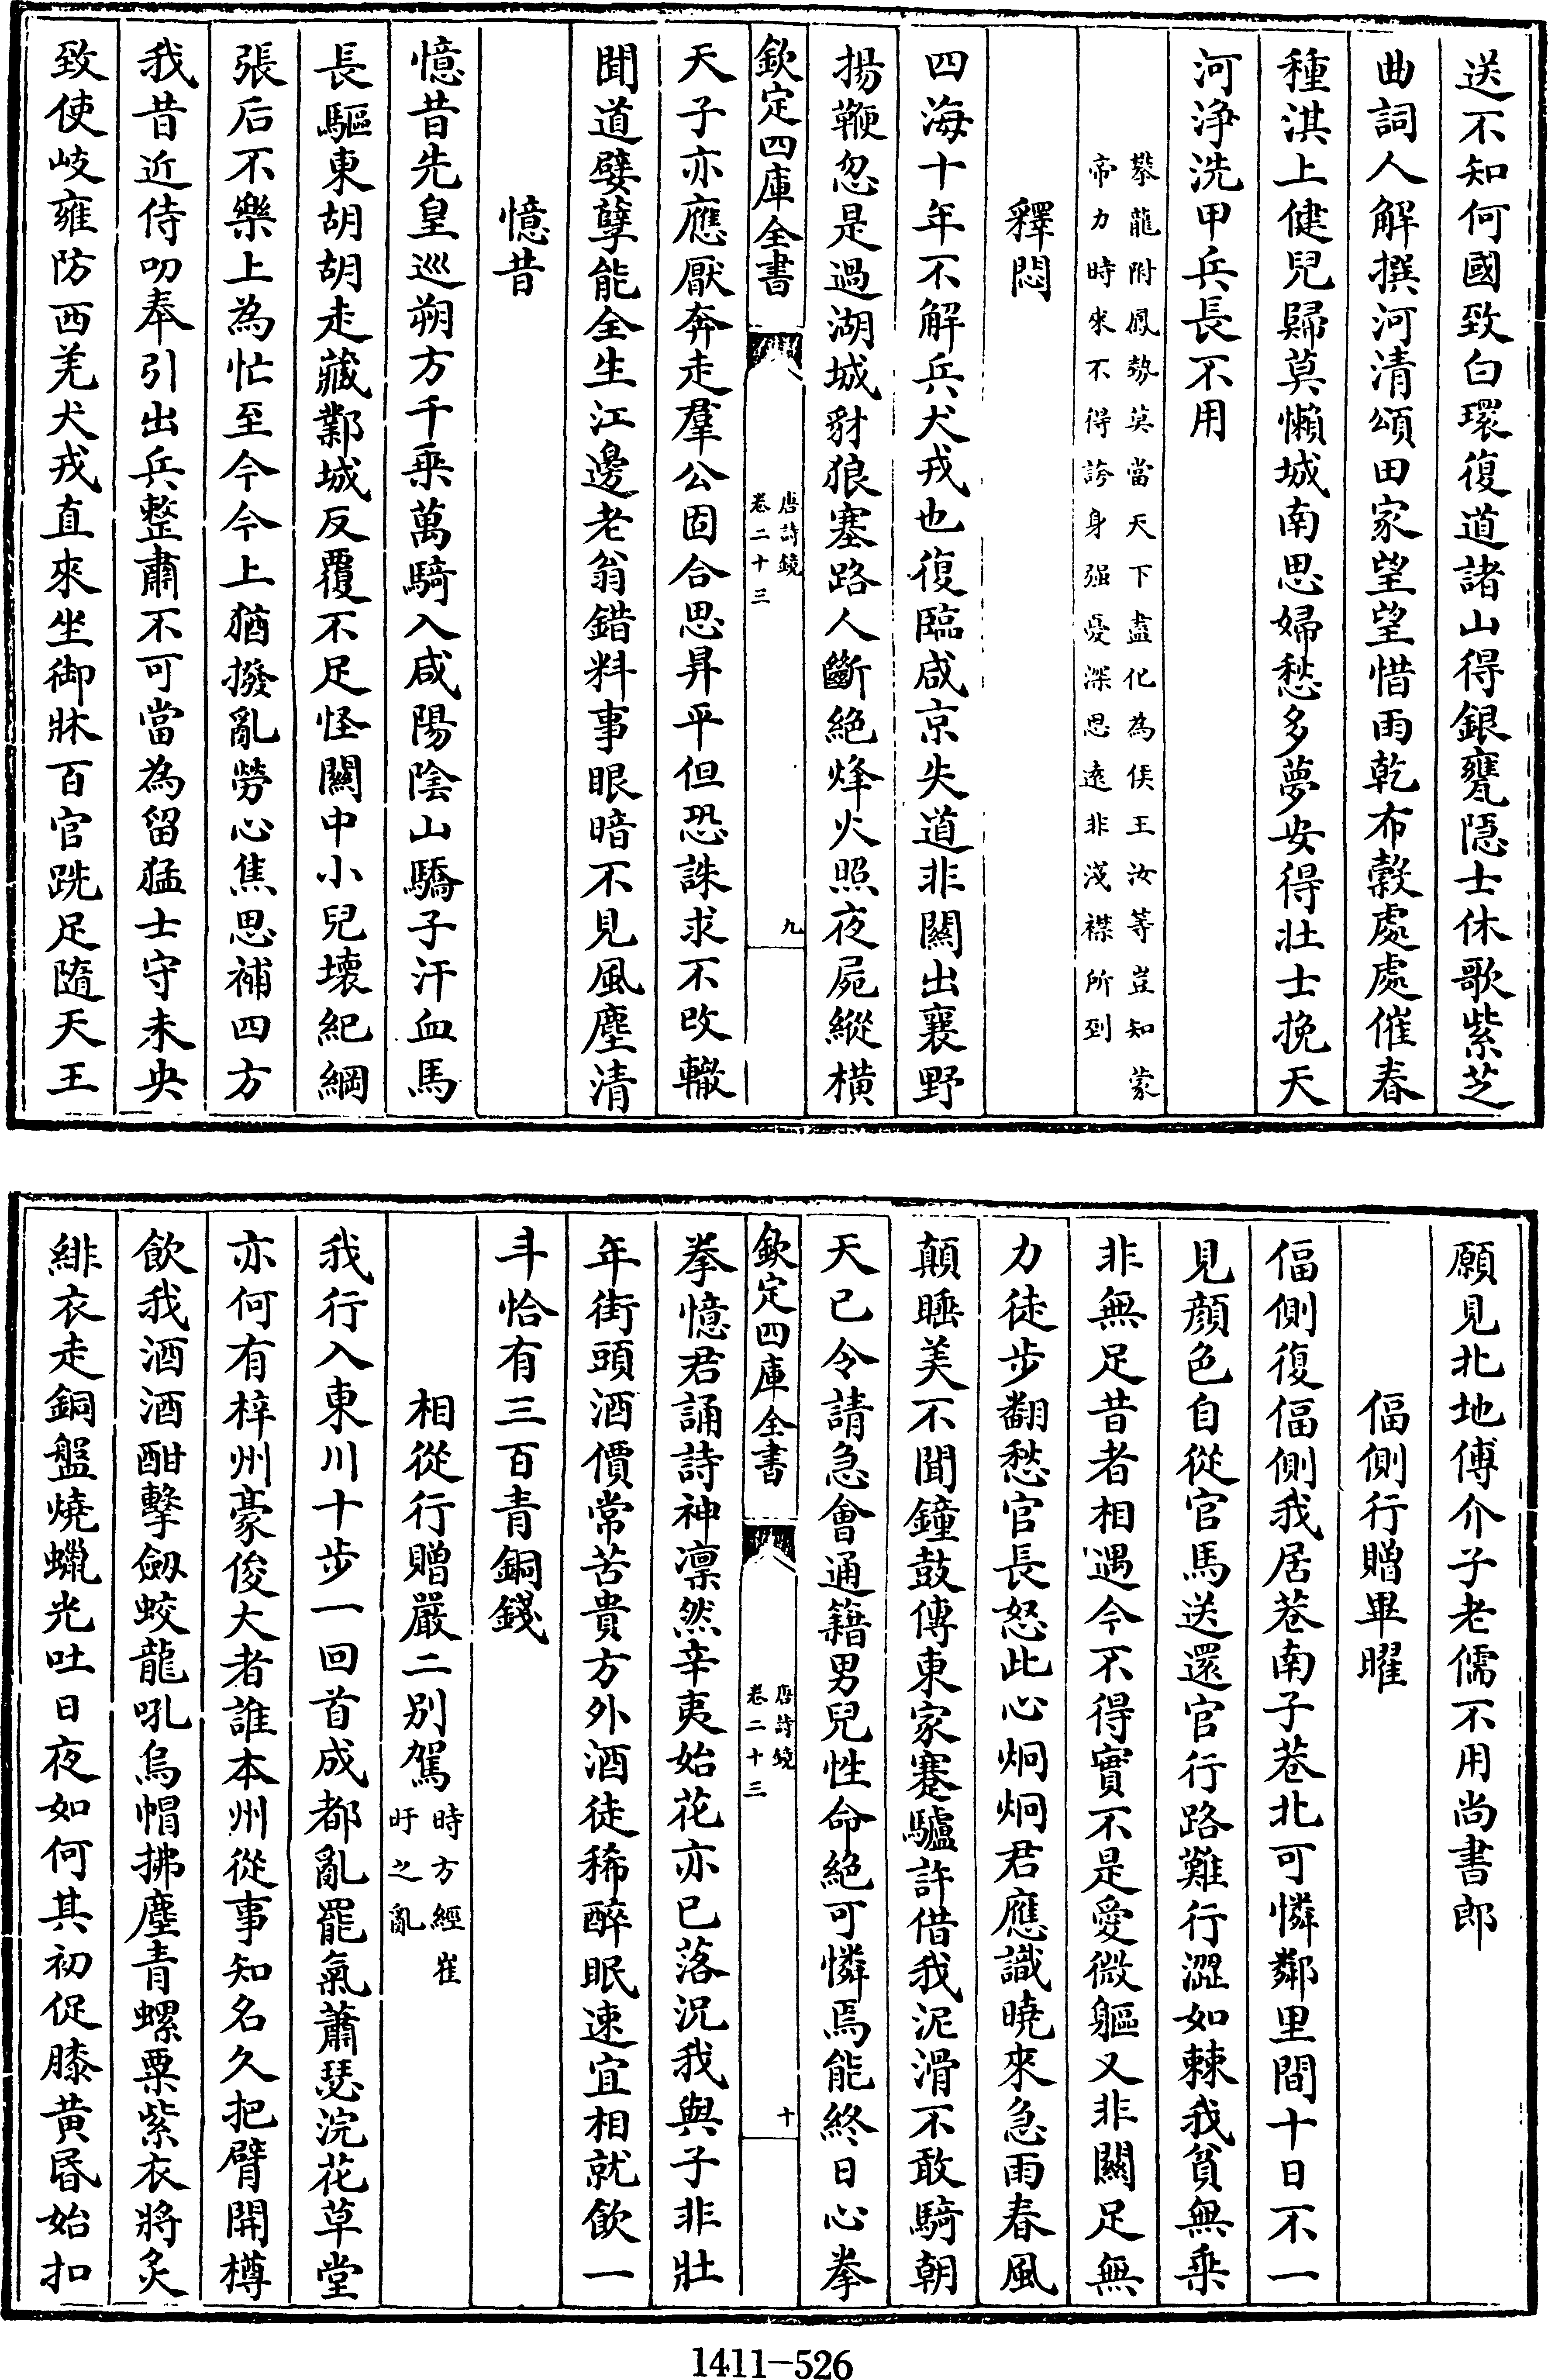 送不知何國致白環復道諸山得銀甕隱士休歌紫芝
曲詞人解撰河清頌田家望望惜雨乾布穀處處催春
種淇上健兒歸莫懶城南思婦愁多夢安得壯士挽天
河淨洗甲兵長不用
攀龍附鳳勢莫當天下盡化為侯王汝等豈知蒙
帝力時來不得誇身强憂深思遠非淺襟所到
釋悶
四海十年不解兵犬戎也復臨咸京失道非關出襄野
揚鞭忽是過湖城豺狼塞路人斷絶烽火照夜屍縱橫
欽定四庫全書
唐詩鏡
卷二十三
九
天子亦應厭奔走羣公固合思昇平但恐誅求不改轍
聞道嬖孽能全生江邊老翁錯料事眼暗不見風塵清
憶昔
憶昔先皇巡朔方千乗萬騎入咸陽陰山驕子汗血馬
長驅東胡胡走藏鄴城反覆不足怪關中小兒壞紀綱
張后不樂上為忙至今今上猶撥亂勞心焦思補四方
我昔近侍叨奉引出兵整肅不可當為留猛士守未央
致使岐雍防西羌犬戎直來坐御牀百官跣足隨天王
願見北地傅介子老儒不用尚書郎
偪側行贈畢曜
偪側復偪側我居巷南子巷北可憐鄰里間十日不一
見顔色自從官馬送還官行路難行澀如棘我貧無乗
非無足昔者相遇今不得實不是愛微軀又非關足無
力徒步翻愁官長怒此心炯炯君應識曉來急雨春風
顛睡美不聞鐘鼓傳東家蹇驢許借我泥滑不敢騎朝
天已令請急會通籍男兒性命絶可憐焉能終日心拳
欽定四庫全書
唐詩鏡
卷二十三
十
拳憶君誦詩神凛然辛夷始花亦已落況我與子非壯
年街頭酒價常苦貴方外酒徒稀醉眠速宜相就飲一
斗恰有三百青銅錢
相從行贈嚴二别駕
時方經崔
旴之亂
我行入東川十步一回首成都亂罷氣蕭瑟浣花草堂
亦何有梓州豪俊大者誰本州從事知名久把臂開樽
飲我酒酒酣擊劔蛟龍吼烏帽拂塵青螺粟紫衣將炙
緋衣走銅盤燒蠟光吐日夜如何其初促膝黄昏始扣
1411-526